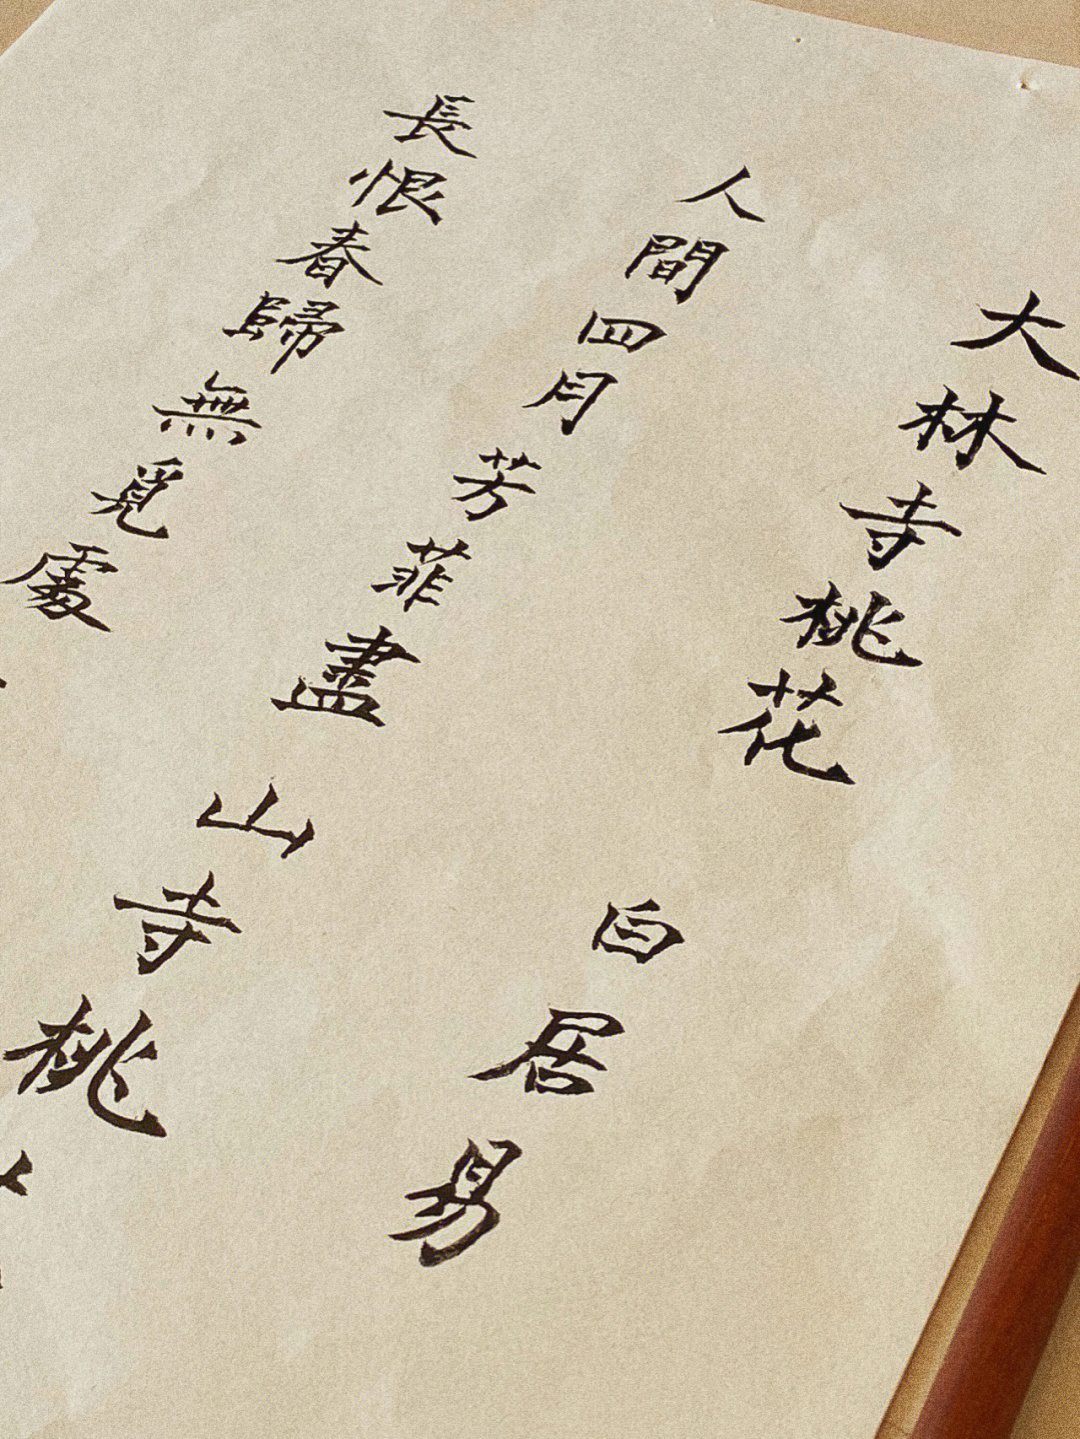 大林寺桃花
白居易
人間四月芳菲盡山寺桃
長恨春歸無覓處